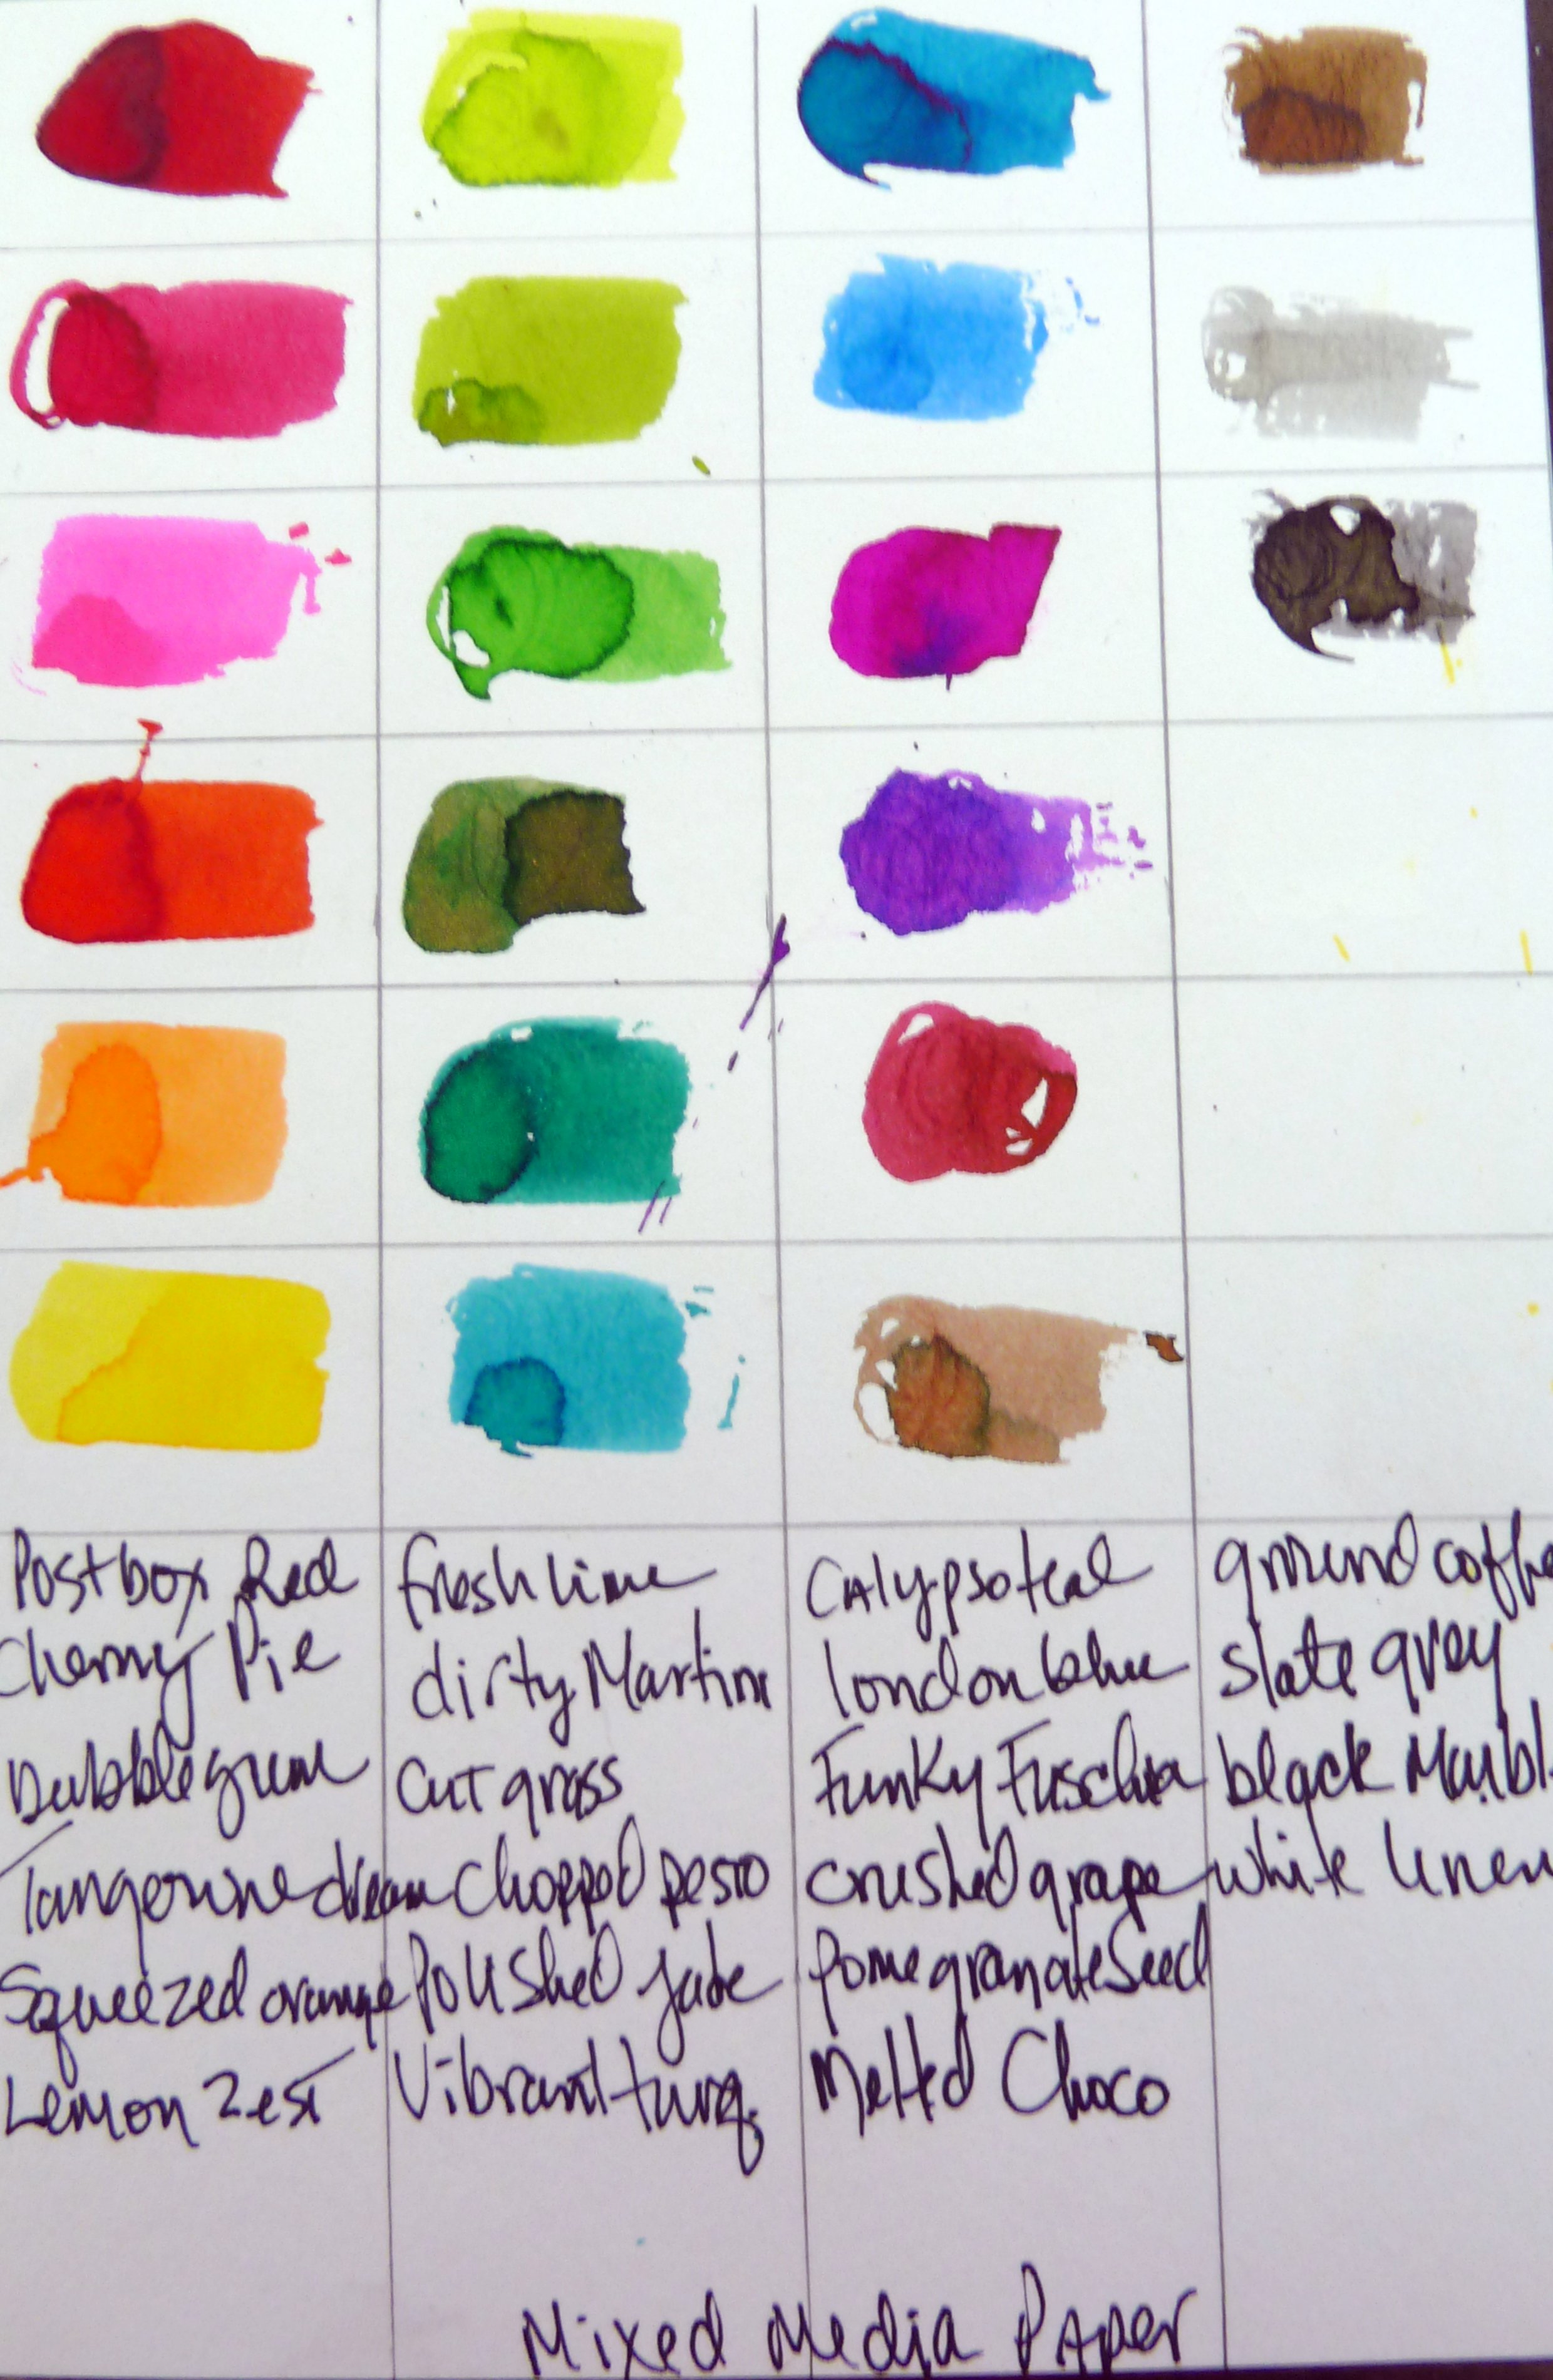 Postbox Red
Cherry Pie
Bubblegum
Tangerine dream
Squeezed orange
Lemon Zest
fresh lime
dirty Martini
Cut grass
Chopped pesto
Polished Jade
Vibrant turq.
Calypso teal
london blue
Funky Fuschia
crushed grape
pomegranate Seed
Melted Choco
ground coffe
slate grey
black Marbl
white linen
Mixed Media Paper